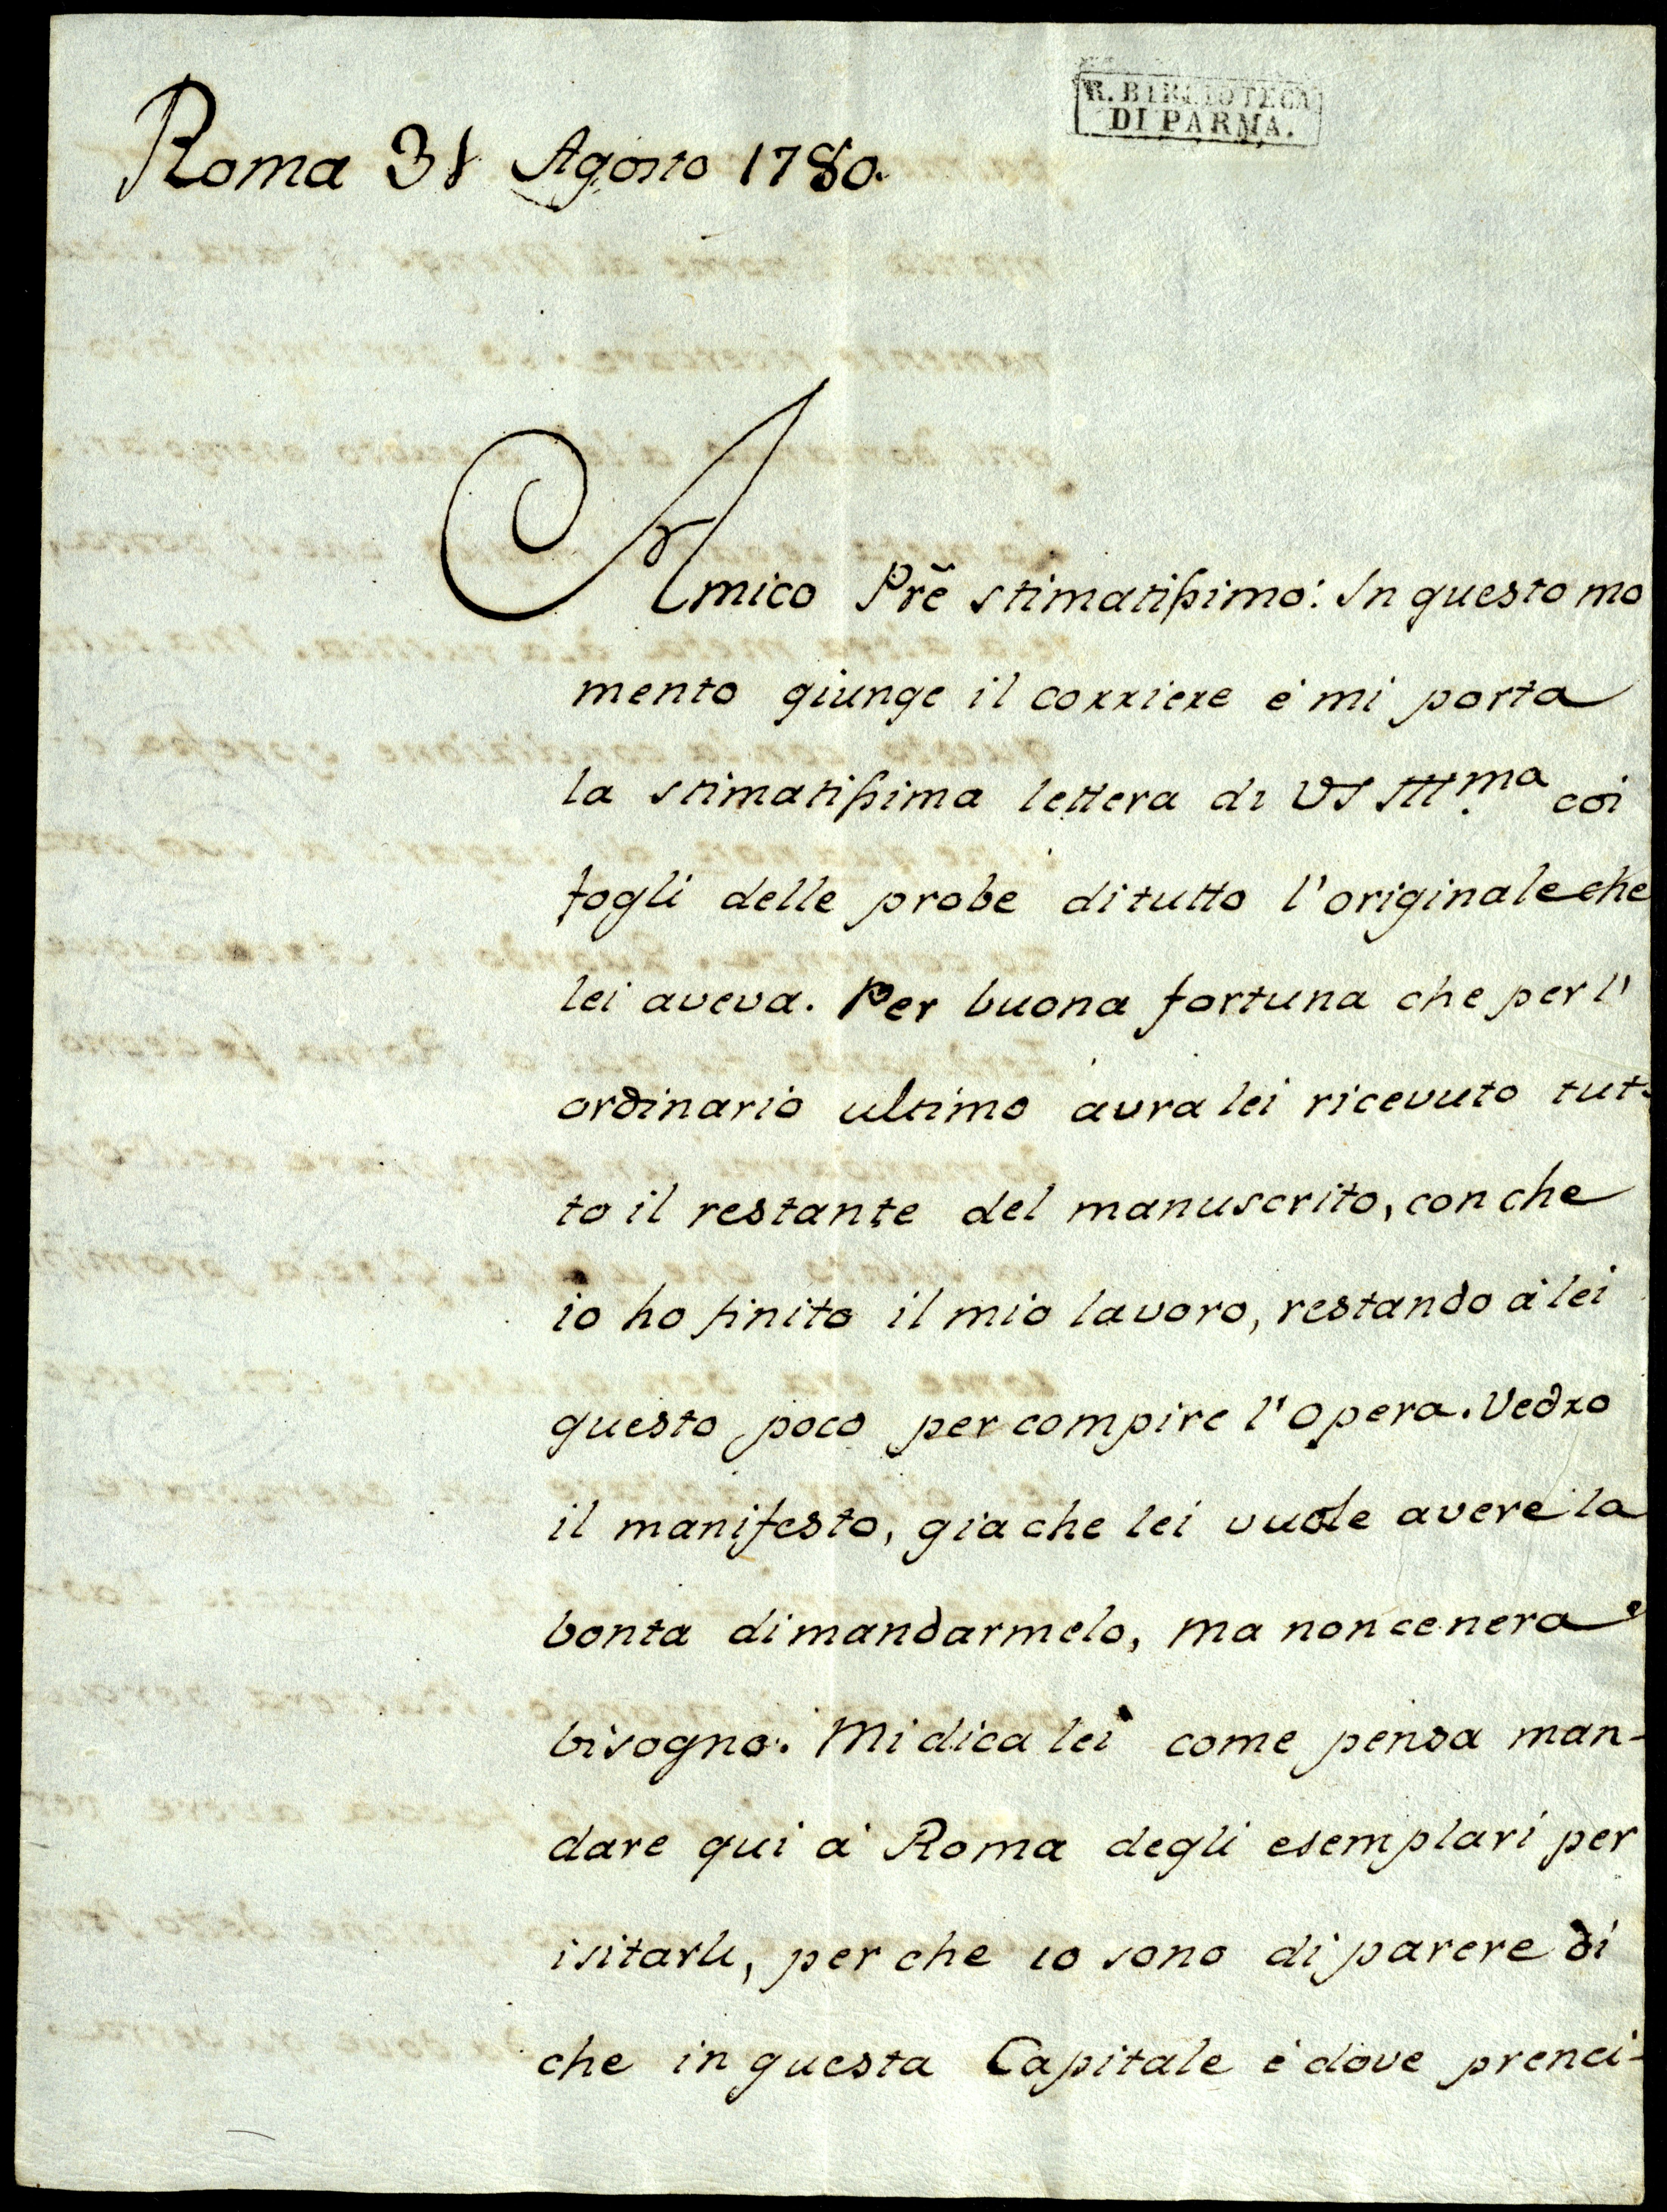 R. BIBLIOTECA
DI PARMA.
Roma 31 Agosto 1780.
Amico Prẽ stimatissimo: In questo mo
mento giunge il corriere é mi porta
la stimatissima lettera di VS Illma coi
fogli delle probe di tutto l'originale che
lei aveva. Per buona fortuna che per l'
ordinario ultimo avra lei ricevuto tut-
to il restante del manuscrito, con che
io ho finito il mio lavoro, restando à lei
questo poco per compire l'opera. Vedro
il manifesto, gia che lei vuole avere la
bonta di mandarmelo, ma non ce nera
bisogno. Mi dica lei come pensa man-
dare qui à Roma degli esemplari per
isitarli, per che io sono di parere di
che in questa Capitale é dove prenci-